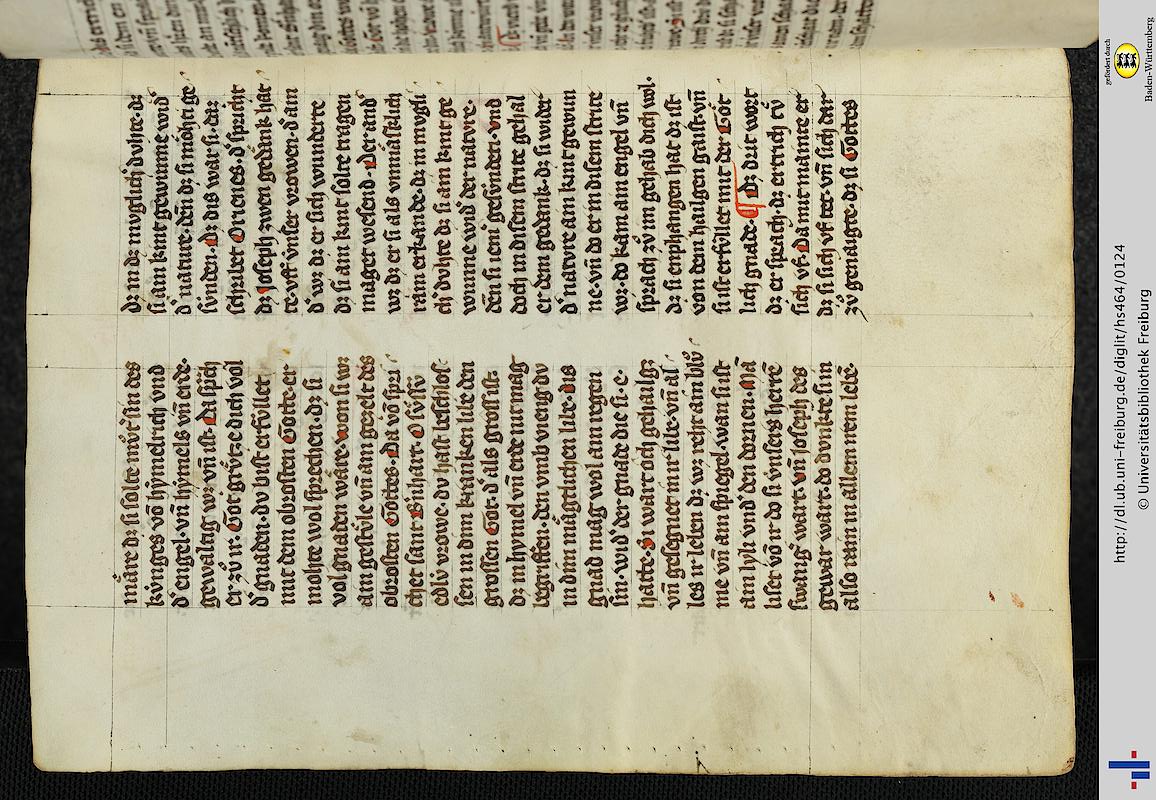 märe dz si solte mvͦt͛ sin des
kv́nges vō hymelrich vnd
d͛ engel · vn̄ hymels vn̄ erde ·
gewaltig wz vn̄ ist · Da sp̄ch
er zvͦ ir · Got grv́tze dich vol
d͛ gnaden · dv bist erfúllet
mit dem obrosten Gotte · er
mohte wol sprechen · dz si
vol gnaden wäre · won si wz
ain gestv́le vn̄ ain gezelt des
obrosten Gottes · Da vō spri
cher sant B͛nhart · O sv́ssv́
edlv́ vrowe · dv hast beschlos
sen in dinn kranken libe den
grossen Got · d͛ als gros ist ·
dz in hymel vn̄ erde nit mag
begriffen · den vmb vieng dv
in dinn mägtlichen libe · Dis
gnad mag wol ain regen
sin · wid͛ der gnade die si · e ·
hatte · Si wart och gehailgz
vn̄ gesegnet mit libe · vn̄ al
les ir leben dz wz reht ain blvͦ
me vn̄ ain spiegel · wan si ist
ain lyli vnd͛ den dornen · Mā
liset vō ir do si vnsers herrē
swang͛ wart · vn̄ Joseph des
gewar wart · do donhte si in
also rain in allem irem lebē ·
dz in dz mvglich dvhte · dz
si ain kint gewinne wid͛
d͛ nature · den̄ dz si möhti ge
sv́nden · Dz dis war si · daz
schribet Orienes · d͛ spricht
dz Joseph zwen gedank hat
te · vff vnser vrowen · d͛ ain
d͛ wz · dz er sich wunderte
dz si ain kint solte tragen
mäger wesend · Der and͛
wz dz er si als vnmässlich
rain erkande · dz in mvgli
ch dvhte dz si ain kint ge
wunne wid͛ der nature ·
den̄ si ieme gesv́ndeti · vnd
doch in disem strite gehal
er dem gedank · dz si wider
d͛ nature ain kint gewun
ne · vn̄ do er in disem strite
wz · do kam ain engel vn̄
sprach zvͦ im gehab dich wol ·
dz si enphangen hat dz ist
von dem hailgen gaist · vn̄
si ist erfv́llet mit der Göt
lich gnade · ¶ Dz drit wort
dz er sprach · dz ertrich tvͦ
sich vf · Da mit mainte er
dz si sich vf tet vn̄ sich dar
zvͦ genaigte · dz si Gottes
http://dl.ub.uni-freiburg.de/diglit/hs464/0124
© Universitätsbibliothek Freiburg
gefördert durch
Baden-Württemberg